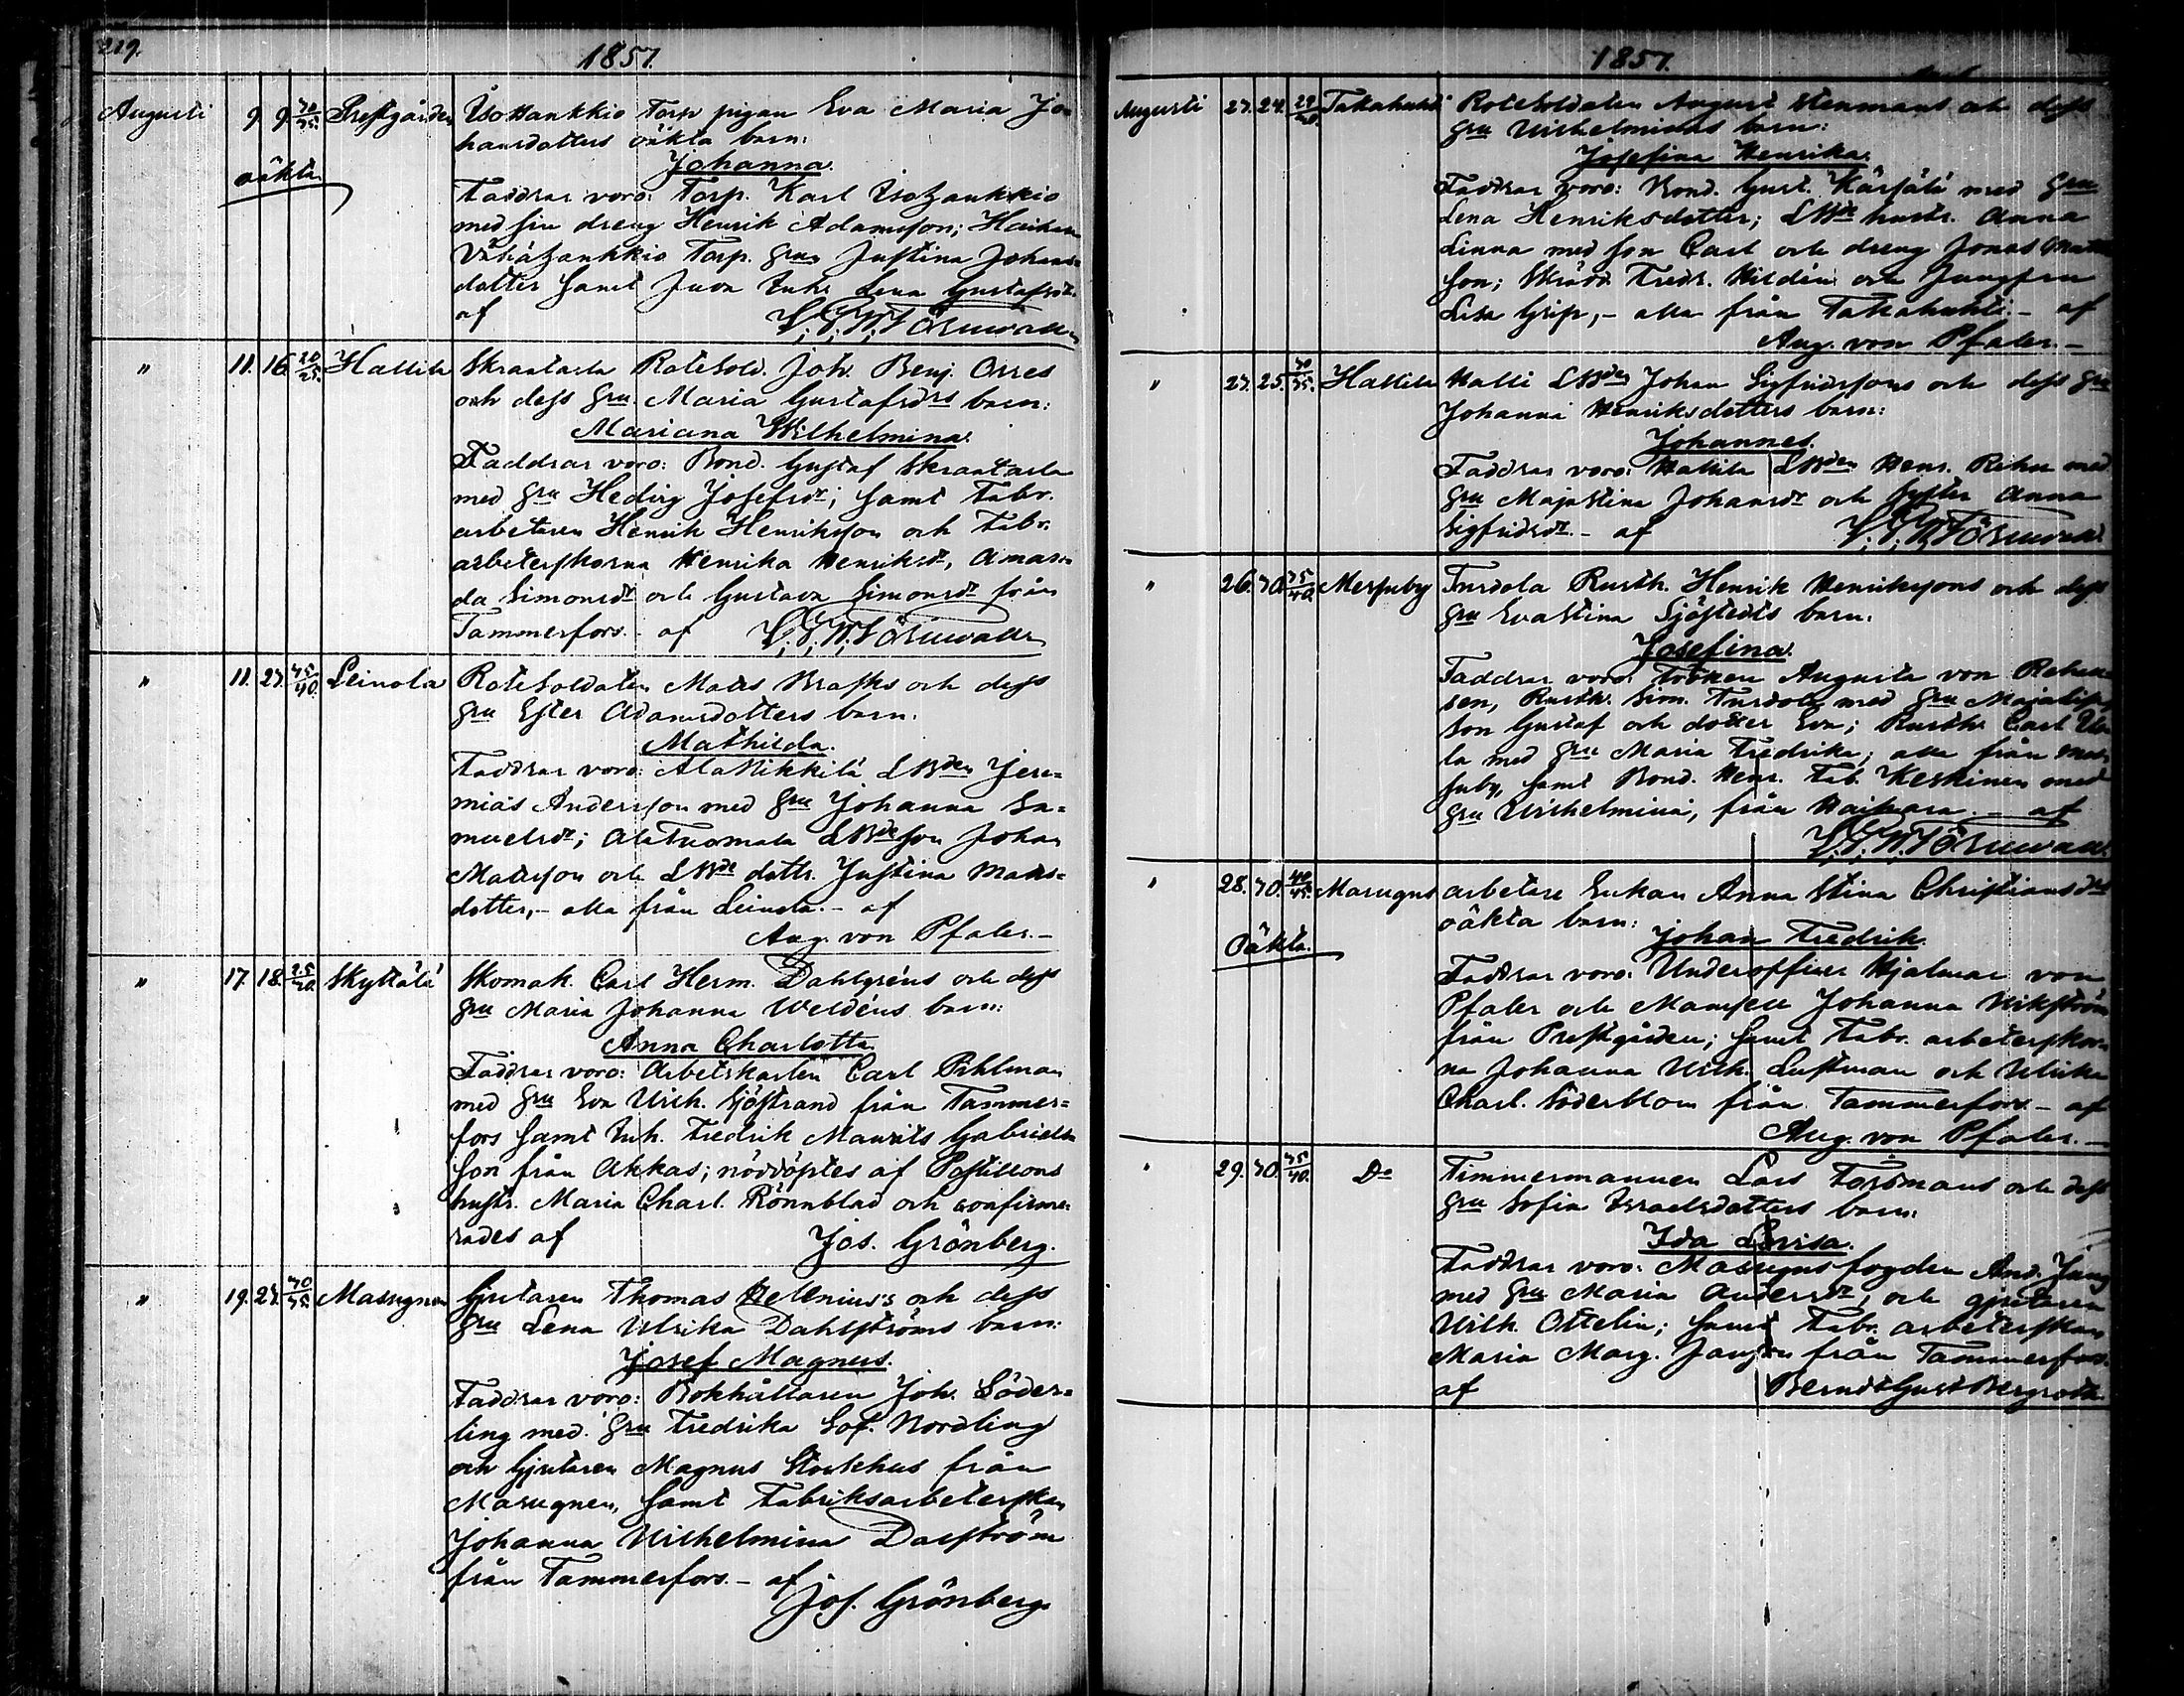 219.
1857.
Augusti 9. 9. 30/35. Prestgården Isohankkio Torp pigan Eva Maria Jo-
hansdotters oäkta barn:
oäkta. Johanna.
Faddrar voro: Torp. Karl Isohankkio
med sin dreng Henrik Adamsson; Haihara
Vähähankkio Torp. hru Justina Johans-
dotter samt Juva Inhs Lena Gustafsdr
af
" 11. 16. 20/25. Hallila Skraatarla Rotesold. Joh. Benj. Orres
och dess hru Maria Gustafsdrs barn:
Mariana Wilhelmina.
Faddrar voro: Bond. Gustaf Skraatarla
med hru Hedvig Josefsdr; samt Fabr.
arbetaren Henrik Henriksson och Fabr.
arbeterskorna Henrika Henriksdr, Aman-
da Simonsdr och Gustava Simonsdr från
Tammerfors. - af
" 11. 23. 35/40. Leinola Rotesoldaten Matts Brasks och dess
hru Ester Adamsdotters barn.
Mathilda.
Faddrar voro: AlaNikkilä LBden Jere-
mias Andersson med hru Johanna Sa-
muelsdr; AlaTuomala LBde son Johan
Matsson och LBde dottr. Justina Mats-
dotter, - alla från Leinola. - af
Aug. von Pfaler. -
" 17. 18. 25/30. Skyttälä Skomak. Carl Herm. Dahlgréns och dess
hru Maria Johanna Weldéns barn:
Anna Charlotta.
Faddrar voro: Arbetskarlen Carl Pihlman
med hru Eva Wilh. Sjöstrand från Tammer-
fors samt Inh. Fredrik Maurits Gabriels
son från Akkas; nöddöptes af Postillons
hustr. Maria Charl. Rönnblad och confirme-
rades af Jos. Grönberg.
" 19. 23. 30/35. Masugnen Gjutaren Thomas Hellenius's och dess
hru Lena Ulrika Dahlströms barn:
Josef Magnus.
Faddrar voro: Bokhållaren Joh. Söder-
ling med hru Fredrika Sof. Nordling
och Gjutaren Magnus Storkhus från
Masugnen, samt Fabriksarbeterskan
Johanna Wilhelmina Dalström
från Tammerfors. - af
Jos. Grönberg.
1857.
Augusti 23. 24. 29/30. Takahuhti Rotesoldaten August Stenmans och dess
hru Wilhelminas barn:
Josefina Henrika.
Faddrar voro: Bond. Gust. Kärjälä med hru
Lena Henriksdotter; LBde hustr. Anna
Linna med son Carl och dreng Jonas Matts
son; Skrädd. Fredr. Hildén och Jungfru
Lisa Grip, - alla från Takahuhti. - af
Aug. von Pfaler. -
" 23. 25. 30/35. Hallila Halli LBden Johan Sigfridssons och dess hru
Johanna Henriksdotters barn:
Johannes.
Faddrar voro: Hallila LBden Henr. Rihu med
hru Majastina Johansdr och syster Anna
Sigfridsdr. - af
" 26. 30. 35/40. Messuby Turdola Rusth. Henrik Henrikssons och dess
hru Evastina Sjöstedts barn:
Josefina.
Faddrar voro: Fröken Augusta von
sen, Rusth. Sim. Turdola med hru Majalisa,
son Gustaf och dotter Eva; Rusth. Carl
la med hru Maria Fredrika; alla från Mes-
suby, samt Bond. Henr. Fab. Keskinen med
hru Wilhelmina, från Haihara. - af
" 28. 30. 40/45. Masugns arbetare Enkan Anna Stina Christiansdrs
oäkta barn:
Oäkta. Johan Fredrik.
Faddrar voro: Underofficer Hjalmar von
Pfaler och Mamsell Johanna Wikström
från Prestgården; samt Fabr. arbeterskor-
na Johanna Wilh. Lustman och Ulrika
Charl. Söderblom från Tammerfors - af
Aug. von Pfaler. -
" 29. 30. 35/40. Do Timmermannen Lars Forsmans och dess
hru Sofia Israelsdotters barn:
Ida Lovisa.
Faddrar voro: Masugnsfogden And. Jung
med hru Maria Andersdr, och gjutaren
Wilh. Ottelin; samt Fabr. arbeterskan
Maria Marg. från Tammerfors.
af Berndt Gust Bergroth.